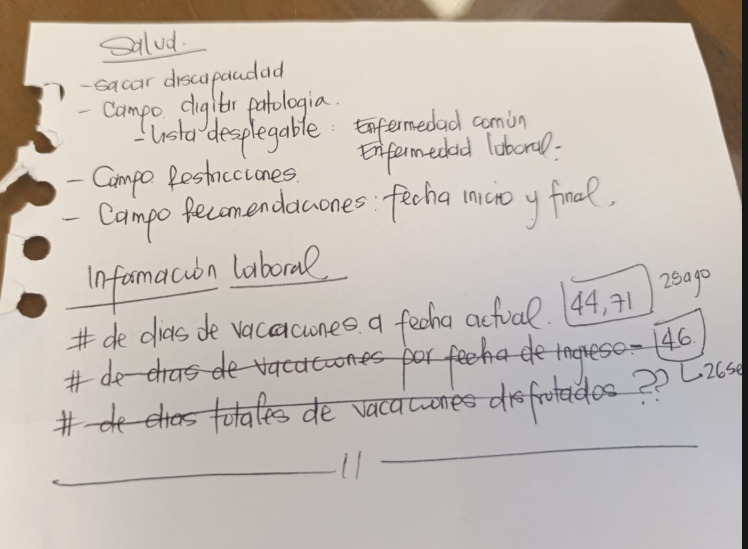 Salud.
- sacar discapacidad
- Campo digitar patologia.
- Lista desplegable: Enfermedad común
Enfermedad laboral.
- Campo Restricciones
- Campo Recomendaciones: fecha inicio y final.
Información laboral
# de dias de vacaciones a fecha actual. 44,71 28ago
# de dias de vacaciones por fecha de ingreso - 46
26se
# de dias totales de vacaciones disfrutados ??